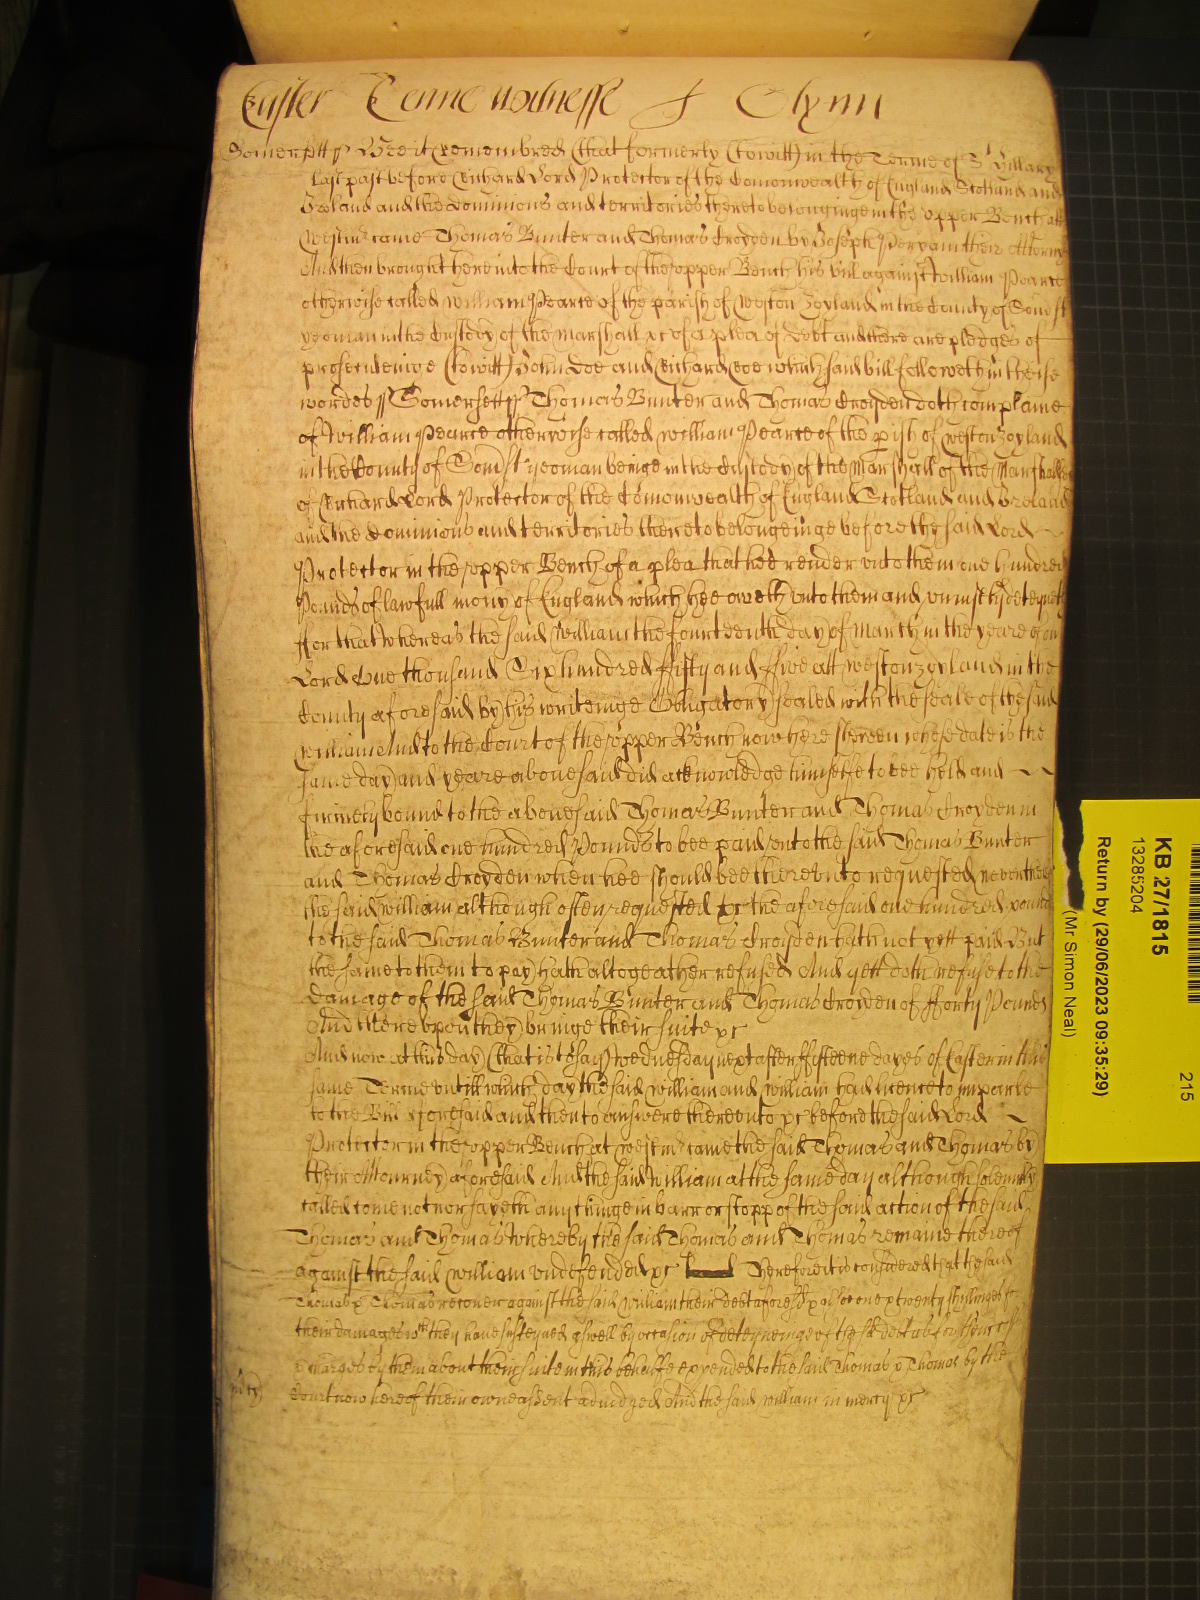 Easter Terme witnesse J Glynn
Somersett ss Bee it Remembred that formerly (to witt) in the Terme of St Hillary
last past before Richard Lord Protector of the Comonwealth of England Scotland and
Ireland and the dominions and territories thereto belonginge in the upper Bench att
Westmr came Thomas Bunter and Thomas Croyden by Joseph their Attorny
And then brought here into the Court of the upper Bench his bill against William Pearce
otherwise called William Pearce of the parish of Weston Zoyland in the County of Somst
yeoman in the Custody of the Marshall xc of a plea of debt and there are pledges of
prosecuteinge (to witt) John Doe and Richard Roe which said bill followeth in these
wordes ss Somersett ss Thomas Bunter and Thomas Croyden doth complaine
of William Pearce otherwise called William Pearce of the pish of Weston Zoyland
in the County of Somst yeoman beinge in the Custody of the Marshall of the Marshalsea
of Richard Lord Protector of the Comonwealth of England Scotland and Ireland
and the dominions and territories thereto belongeinge before the said Lord
Protector in the upper Bench of a plea that hee render unto them one hundred
Pounds of lawfull mony of England which hee oweth unto them and uniustly deteyneth
ffor that whereas the said William the fourteenth day of March in the yeare of our
Lord One thousand Six hundred ffifty and ffive att Weston Zoyland in the
County aforesaid by his writeinge Obligatory sealed with the seale of the said
William And to the Court of the upper Bench now here shewen whose date is the
same day and yeare abovesaid did acknowledge himselfe to bee held and
firmely bound to the abovesaid Thomas Bunter and Thomas Croyden in
the aforesaid one hundred Pounds to bee paid unto the said Thomas Bunter
and Thomas Croyden when hee should bee thereunto requested neverthelesse
the said William although often requested xc the aforesaid one hundred pounds
to the said Thomas Bunter and Thomas Croyden hath not yett paid But
the same to them to pay hath altogeather refused And yett doth refuse to the
damage of the said Thomas Bunter and Thomas Croyden of fforty Pounds
And thereupon they bringe their suite xc
And now at this day (that is to say) wednesday next after ffifteene dayes of Easter in this
same Terme untill which day the said William and William had licence to imparle
to the Bill aforesaid and then to answere thereunto xc before the said Lord
Protector in the upper Bench at Westmr came the said Thomas and Thomas by
their Attourney aforesaid And the said William at the same day although solemnly
called come not nor sayeth any thinge in barr or stopp of the said action of the said
Thomas and Thomas whereby the said Thomas and Thomas remaine thereof
against the said William undefended xc Therefore it is considered that the said
Thomas & Thomas recover against the said William their debt aforesd & alsoe one & twenty shillings for
their damages wch they have susteyned aswell by occasion of deteyneinge of the sd debt as for their costs
& charges by them about their suite in this behalfe expended to the said Thomas & Thomas by the
mcy Court now here of their owne assent adiudged And the said William in mercy xc
KB 27/1815
13285204
Return by (29/06/2023 09:35:29)
(Mr Simon Neal)
215